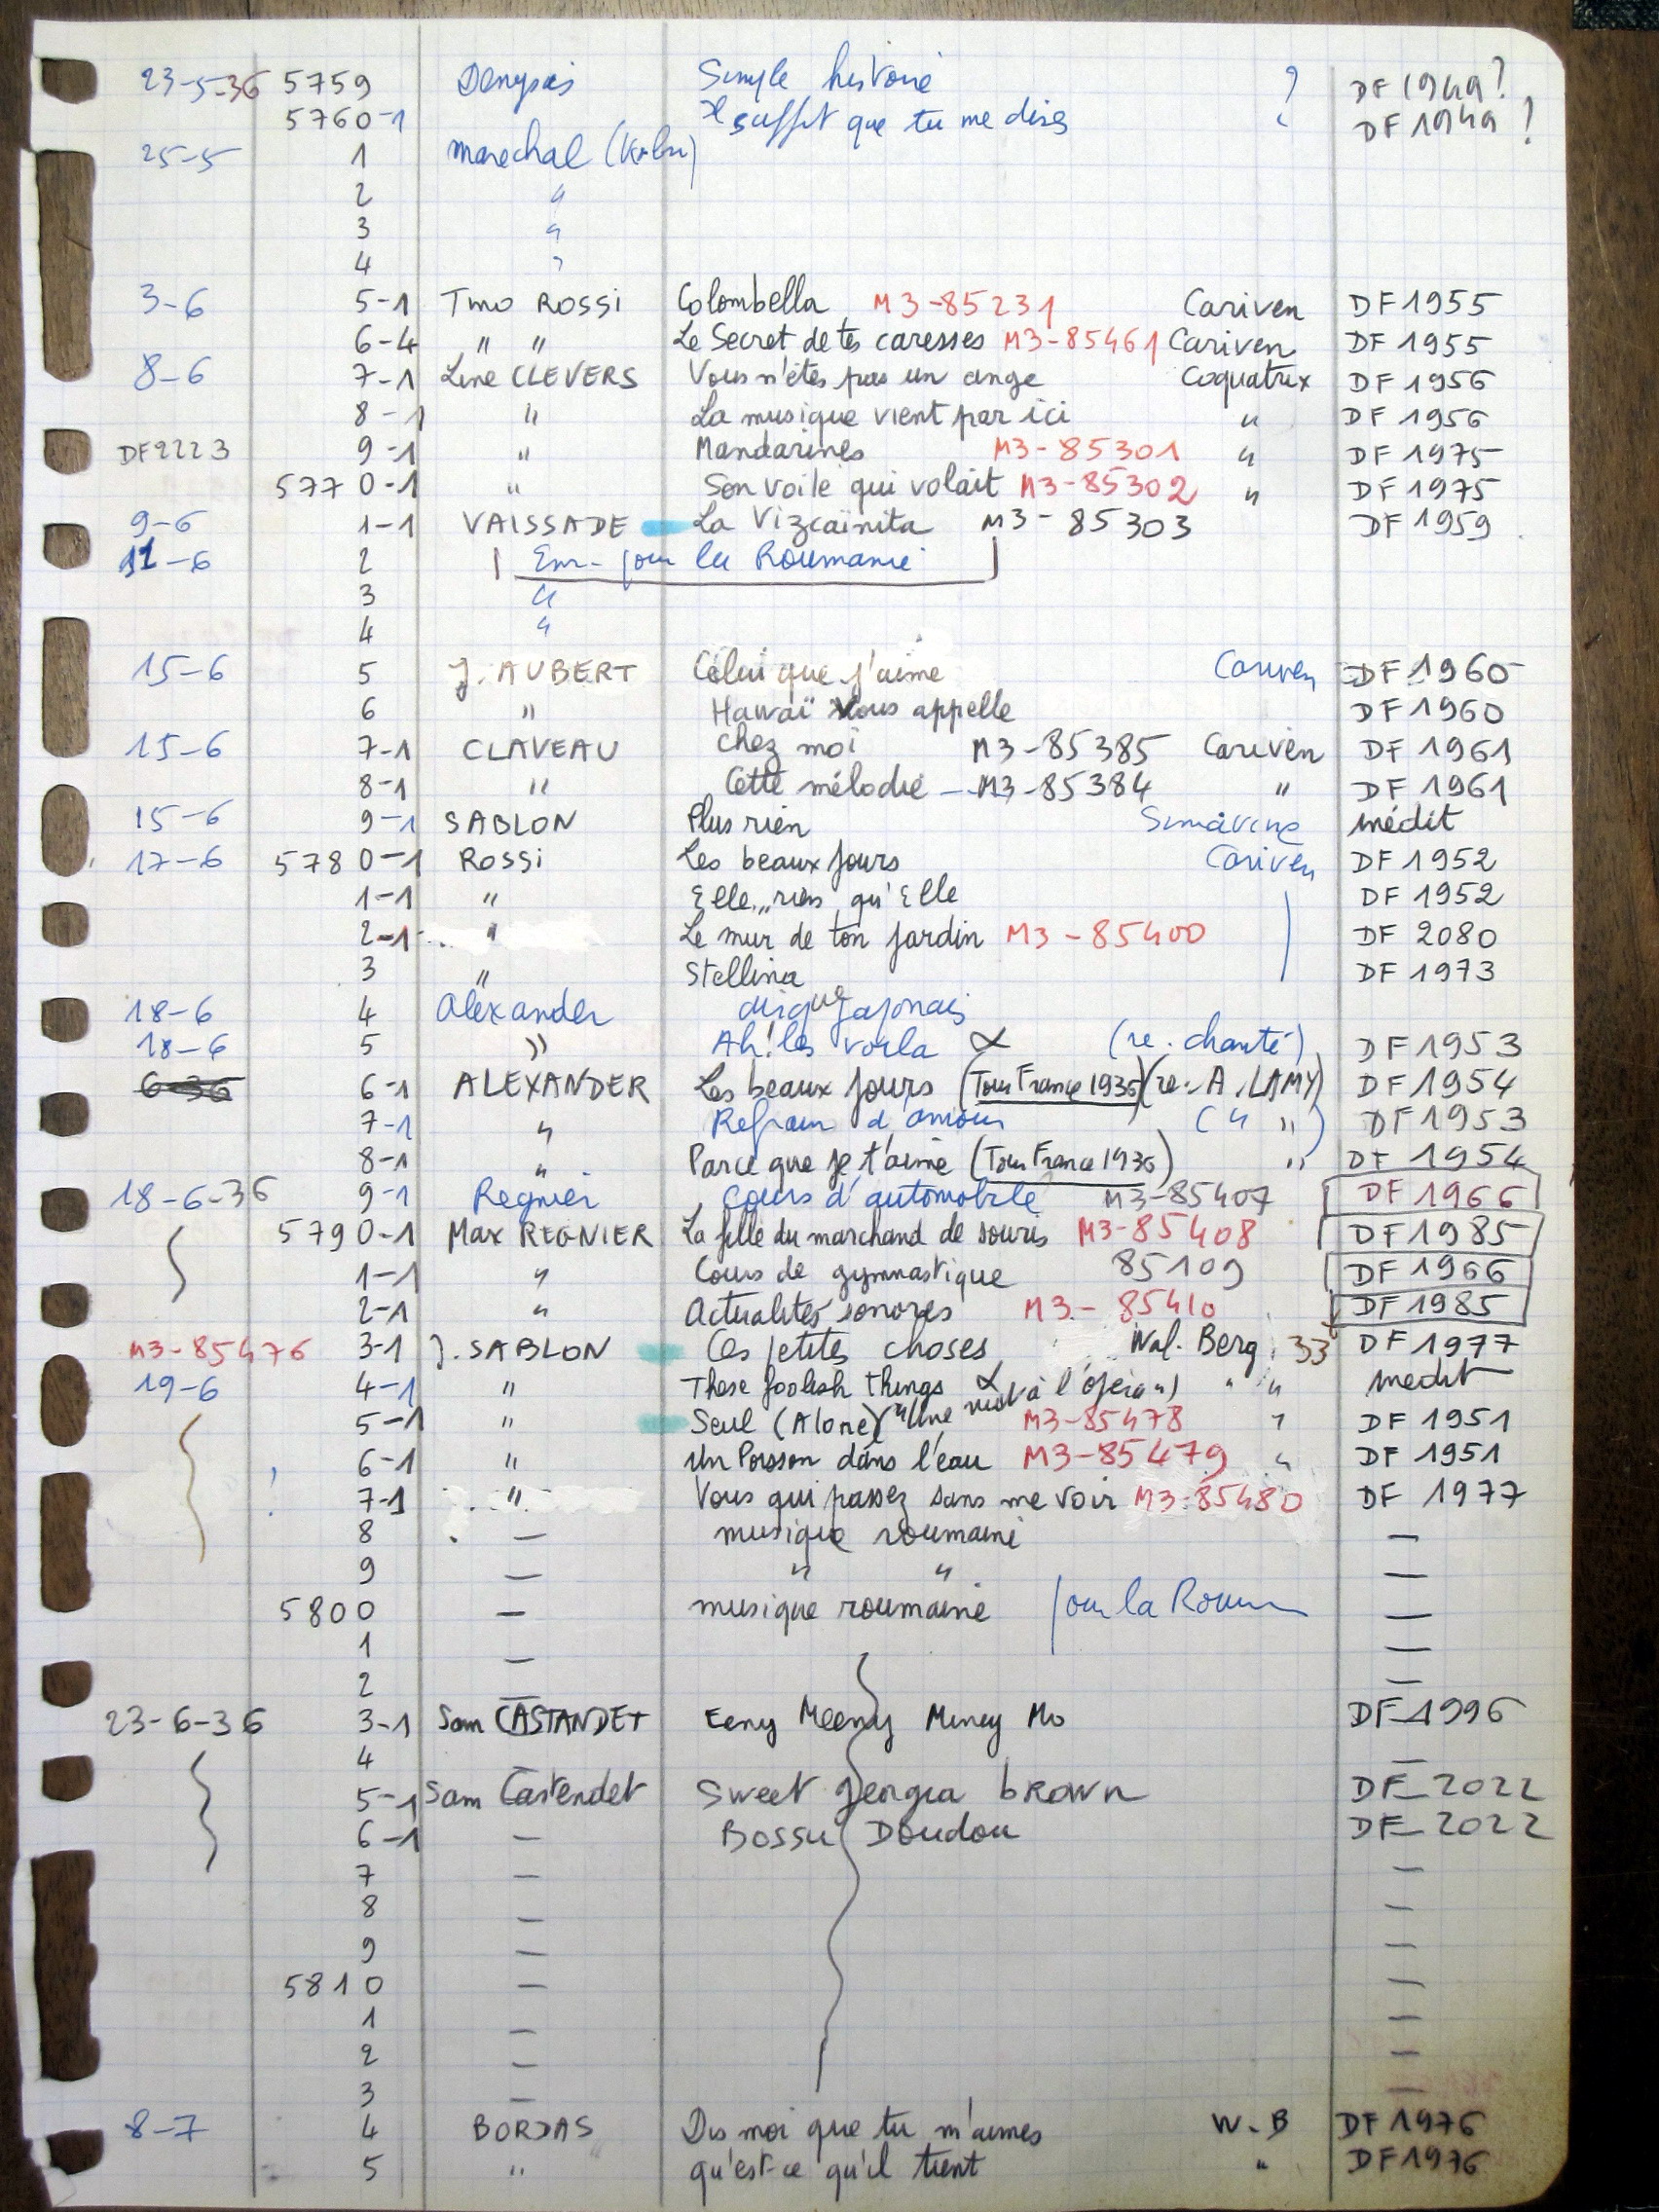 23-5-36 5759 Denysis Simple histoire ? DF 1949?
5760-1 Il suffit que tu me dises DF 1949?
25-5 1 Marechal
2 "
3 "
4 "
3-6 5-1 Tino ROSSI Colombella M3-85231 Cariven DF 1955
6-4 " " Le Secret de tes caresses M3-85461 Cariven DF 1955
8-6 7-1 Line CLEVERS Vous n'êtes pas un ange Coquatrix DF 1956
8-1 " La musique vient par ici " DF 1956
DF2223 9-1 " Mandarines M3-85301 " DF 1975
5770-1 " Son voile qui volait M3-85302 " DF 1975
9-6 1-1 VAISSADE La Vizcaïnita M3-85303 DF 1959
11-6 2 Enr- pour la Roumanie
3 "
4 "
15-6 5 J. AUBERT Celui que j'aime Cariven DF 1960
6 " Hawaï vous appelle DF 1960
15-6 7-1 CLAVEAU Chez moi M3-85385 Cariven DF 1961
8-1 " Cette mélodie - M3-85384 " DF 1961
15-6 9-1 SABLON Plus rien inédit
17-6 5780-1 ROSSI Les beaux jours Cariven DF 1952
1-1 " Elle...rien qu'Elle DF 1952
2-1 " Le mur de ton jardin M3-85400 DF 2080
3 " Stellina DF 1973
18-6 4 Alexander disque japonais
18-6 5 " Ah! les voilà (re. chanté) DF 1953
6-36 6-1 ALEXANDER Les beaux jours (Tour France 1936) (re. A. LAMY) DF 1954
7-1 " Refrain d'amour (" ") DF 1953
8-1 " Parce que je t'aime (Tour France 1936) " DF 1954
18-6-36 9-1 Regnier Cours d'automobile M3-85407 DF 1966
5790-1 Max REGNIER La fille du marchand de souris M3-85408 DF 1985
1-1 " Cours de gymnastique 85109 DF 1966
2-1 " Actualités sonores M3-85410 DF 1985
M3-85476 3-1 J. SABLON Ces petites choses Wal. Berg 33t DF 1977
19-6 4-1 " These foolish things " " inédit
5-1 " Seul (Alone) ("Une nuit à l'opéra") M3-85478 " DF 1951
6-1 " Un Poisson dans l'eau M3-85479 " DF 1951
7-1 " Vous qui passez sans me voir M3-85480 DF 1977
8 — musique roumaine —
9 — " " —
5800 — musique roumaine pour la Roum —
1 — —
2 — —
23-6-36 3-1 Sam CASTANDET Eeny Meeny Miney Mo DF 1996
4 — —
5-1 Sam Castendet Sweet georgia brown DF 2022
6-1 — Bossu Doudou DF 2022
7 — —
8 — —
9 — —
5810 — —
1 — —
2 — —
3 — —
8-7 4 BORDAS Dis moi que tu m'aimes W.B DF 1976
5 " qu'est-ce qu'il tient " DF 1976